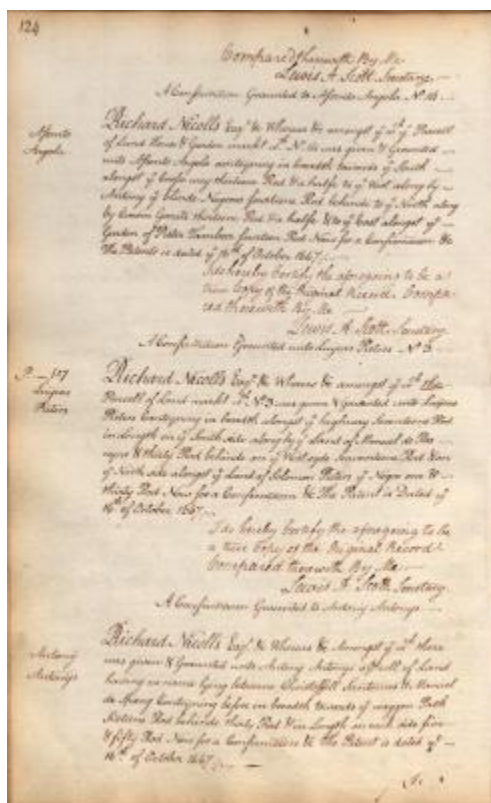 124
Compared therewith By Me
Lewis A. Scott Secretary
A Confirmation Graunted to Assento Angola No 14
Assento
Angola
Richard Nicolls Esqr. &c Whereas &c amongst ye
of Land House & Garden markt No 14 was given & Graunted
unto Assento Angola containing in breadth towards ye South
alongst ye thirteen Rod & a halfe to ye West along by
Antony ye blinde Negroes fourteene Rod behinde to ye North along
by thirteen Rod & a halfe & to ye East alongst ye
Garden of Pieter fourteen Rod Now for a Confirmation &c
The Patents is dated ye 16th of October 1667
I do hereby Certify the aforegoing to be a
true Copy of the Original Record. Compa-
red therewith By Me
Lewis A. Scott Secretary
A Confirmation Graunted unto Pieters No 3
P. 107
Pieters
Richard Nicolls Esqr. &c Whereas &c amongst ye
of Land markt No 3 was given & Graunted unto
Pieters Containing in breadth alongst ye highway Seventeene Rod
in Length on ye South side along by ye Land of Manuel de
& thirty Rod behinde on ye West syde Seventeene Rod & on
ye North side alongst ye Land of Solomon Pieters ye Negroe one &
thirty Rod Now for a Confirmation &c The Patent is Dated ye
16th of October 1667
I do hereby Certify the aforegoing to be
a true Copy of the Original Record
Compared therewith By Me
Lewis A. Scott Secretary
A Confirmation Graunted to Antony Antonys
Antony
Antonys
Richard Nicolls Esqr. &c Whereas &c Amongst ye there
was given & Graunted unto Antony Antonys a of Land
having no name lying between & Manuel
de Containing before in breadth towards ye waggon Path
Sixteene Rod behinde thirty Rod & in Length on each side five
& fifty Rod Now for a Confirmation &c The Patent is dated ye
16th of October 1667